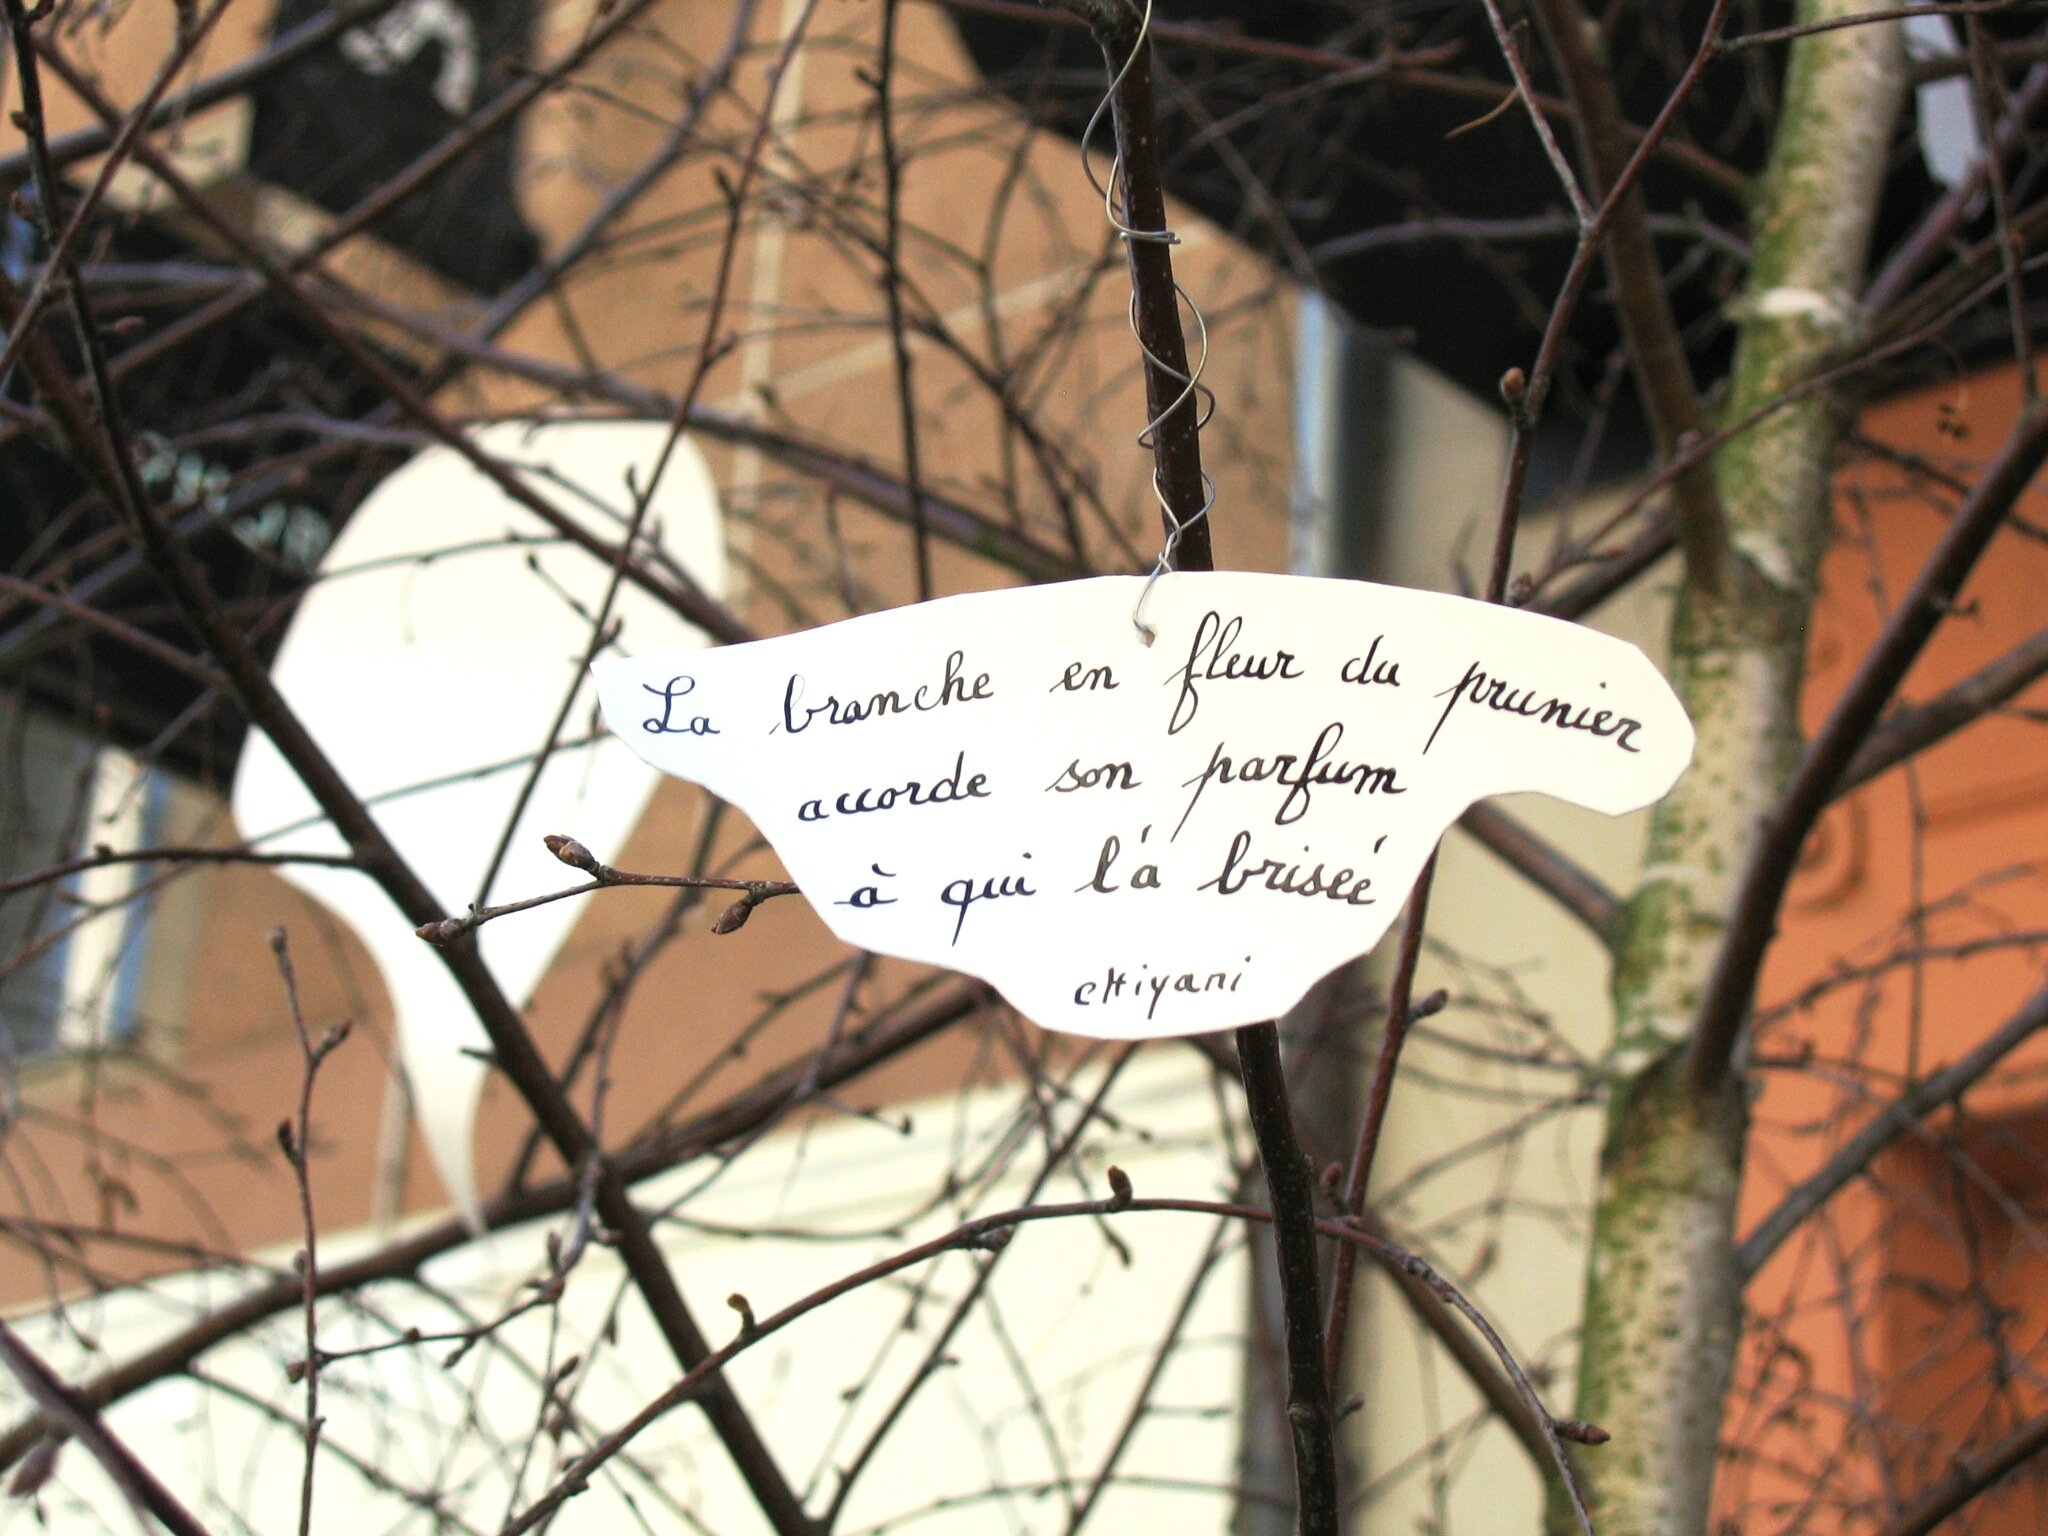 La branche en fleur du prunier
accorde son parfum
à qui l'a brisée
chiyani